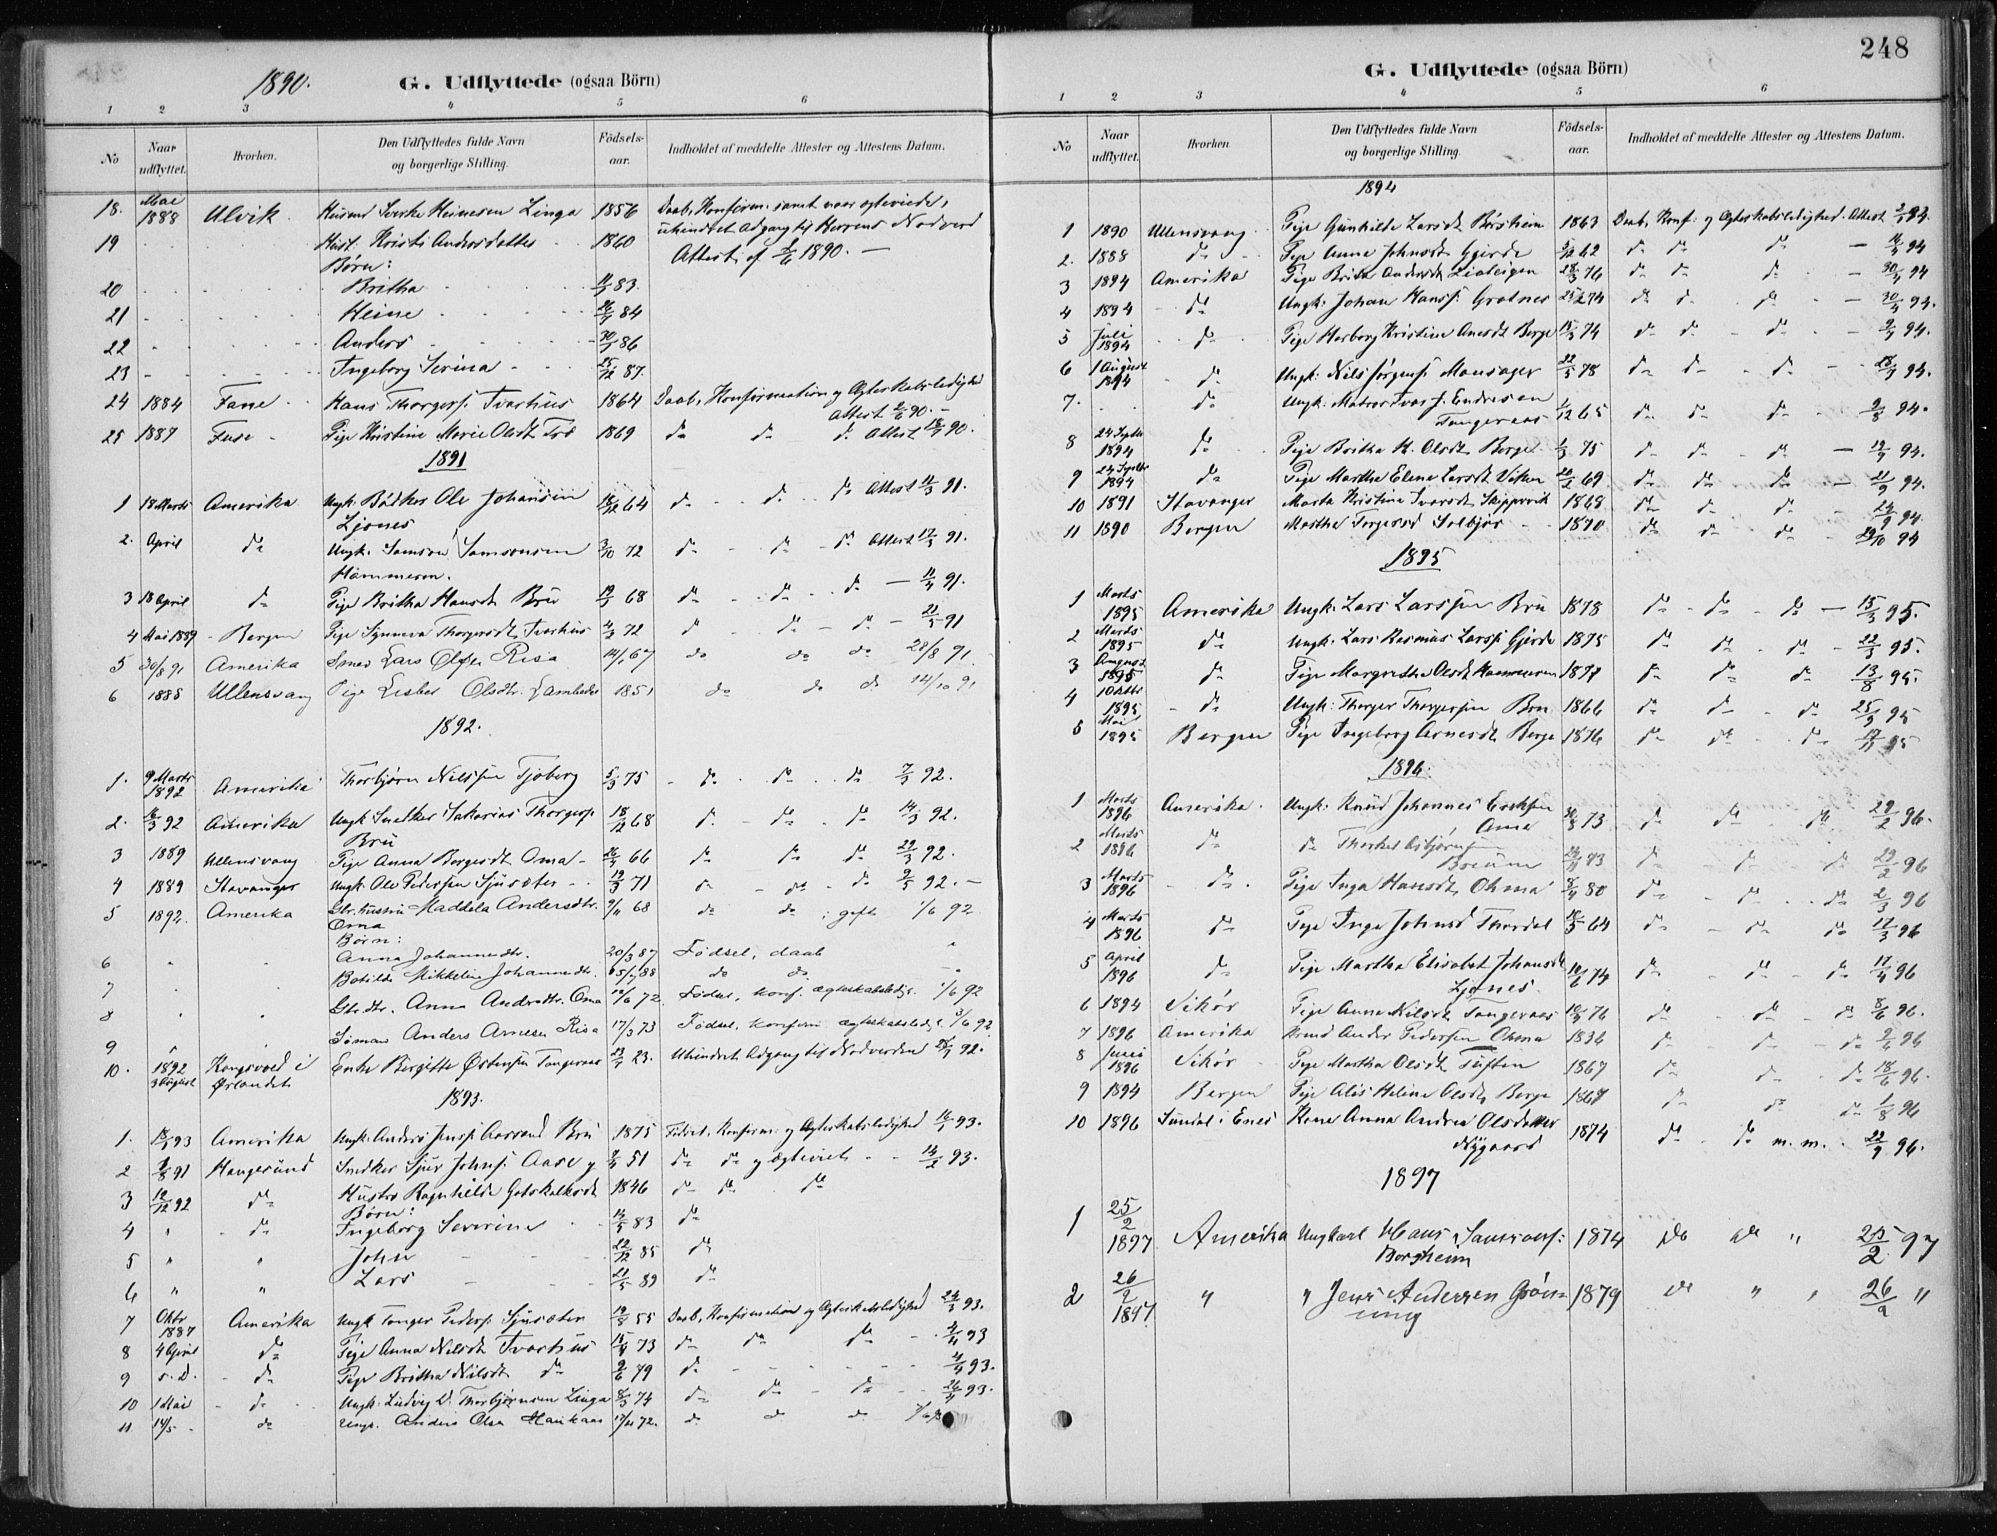 1890.
G. Udflyttede (ogsaa Börn)
1 2 3 4 5 6
No
Naar udflyttet.
Hvorhen.
Den Udflyttedes fulde Navn og borgerlige Stilling.
Födsels-aar.
Indholdet af meddelte Attester og Attestens Datum.
18. Mai 1888 Ulvik Husmd Sverke Heinesen Linga 1856 Daab, Konfirm. samt vaar egteviede,
uhindret Adgang til Herrens Nadverd
19 Hust. Kristi Andersdatter 1860 Attest af 2/6 1890. —
Børn:
20 Britha 83
21 Heine 84
22 Anders 30/ 86
23 Ingeborg Serina 25/12 87.
24 1884 Fane Hans Thorgers. Tvarhus 1864 Daab, Konfirmation og Ægteskabsledighed
Attest 2/6 90. —
25 1887 Fuse Pige Kristine Marie Olsdt. Trö 1869 do do do Attest 90.
1891
1 18 Marts Amerika Ungk. Bödker Ole Johansen 18/12 64 do do do Attest 11/3 91.
Ljones
2. April do Ungk. Samson Samsonsen 3/10 72 do do do Attest 17/3 91.
Hammeren.
3 18 April do Pige Britha Hansdt. Bru 68 do do do — 11/4 91.
4 Mai 1889 Bergen Pige Synneva Thorgersdt. Tvarhus 72 do do do — 21/5 91
5 30/8 91 Amerika Smed Lars Olsen Risa 14/1 67 do do do 28/8 91.
6 1888 Ullensvang Pige Lisbet Olsdtr. 1851 do do do 14/10 91
1892.
1. 9 Marts 1892 Amerika Thorbjörn Nilssen Tjoberg 5/3 75 do do do 7/3 92.
2. 16/3 92 Amerika Ungk. Snedker Sakarias Thorgers. 18/12 68 do do do 14/3 92.
Bru
3 1889 Ullensvang Pige Anna Borgesdt. Oma 66 do do do 29/3 92.
4 1889 Stavanger Ungk. Ole Pedersen Sjusæter 71 do do do 9/5 92. —
5 1892. Amerika Gbr. hustru Maddela Andersdtr. 9/11 68 do do; gift 1/6 92
Oma
Børn:
6 " " Anna Johannesdtr. 20/3 87 Fødsel, daab "
7 " " Botilde Mikkeline Johannesdtr. 88 do do "
8 " " Gbr.dtr. Anna Andersdtr. Oma 72 Fødsel, konf. ægteskabsledig. 1/6 92
9 " " Sømand Anders Arnesen Risa 17/3 73 Fødsel, konfirm. ægteskabsledig 3/6 92
10. 1892 3 August Kongsvold i Enke Birgitte Østensen Tangeraas 23. Uhindret Adgang til Nadverden 92.
Ørlandet
1893.
1. 93 Amerika Ungk. Anders Jensf. Aarsand Bru 1875 Födsel, Konfirm. og Ægteskabsledighed 93.
2 91 Haugesund Snedker Sjur Johnsf. Aase 51 do do og egteviet 14/2 93.
3 12/12 92 do Hustro Ragnhilde Gotskalksdt. 1846 do do do
Børn:
4 " do Ingeborg Severine 83 do
5 " " John 22/12 85 do
6 " " Lars 21/5 89 do
7 Oktr 1887 Amerika Ungk. Tonger Peders. Sjusæter 55 Daab, Konfirmation og Ægteskabsledighed 24/3 93.
8 4 April do Pige Anna Nilsdt. Tvarhus 15/4 73 do do do 93
9 s. D. do Pige Britha Nilsdt. do 79 do 93.
10 1 Mai do Ungk. Ludvig D. Thorbjørnsen Linga 8/3 74 do do do 93.
11 14/5 do Ungk. Anders Olsen Haukaas 17/11 72. do do do
248
G. Udflyttede (ogsaa Börn)
1 2 3 4 5 6
No
Naar udflyttet.
Hvorhen.
Den Udflyttedes fulde Navn og borgerlige Stilling.
Födsels-aar.
Indholdet af meddelte Attester og Attestens Datum.
1894
1 1890 Ullensvang Pige Gunhilde Larsdt. Borsheim 1863 Daab, Konf. og Ægteskabsledighed. Attest 93.
2. 1888 do Pige Anna Johnsdt. Gjerde 62 do do do — 94
3 1894 Amerika Pige Brita Andersdt. 28/3 76 do do do — 30/ 94
4 1894 do Ungk. Johan Hansf. Grotnes 74 do do do — 30/4 94.
5 Juli 1894 do Pige Herborg Kristine Arnesdt. Berge 74 do do do — 94.
6 1 August 1894 do Ungk. Nils Jörgens. Mansager 78 do do do — 94.
7. do Ungk. Matros Ivar J. Endresen 1/12 65 do do do — 9/8 94.
Tangeraas
8 24 Septbr 1894 do Pige Britha K. Olsdt. Berge 75 do do do — 19/9 94.
9 24 Septbr 1894 do Pige Martha Elene Larsdt. Viken 69 do do do — 21/9 94.
10 1891 Stavanger Marta Kristine Ivarsdt. Skippervik 1868 do do do 24/9 94
11 1890 Bergen Martha Torgersd. Solbjør 1870 do do do 29/10 94
1895
1 Marts 1895 Amerika Ungk. Lars Larssen Bru 1878 do do do — 15/3 95.
2 Marts 1895 do Ungk. Lars Rasmus Larsf. Gjerde 1875 do do do 22/3 95.
3 August 1895 do Pige Margrethe Olsdt. Hammeren 1877 do do do 13/8 95.
4 1 Oktbr 1895 do Ungk. Thorger Thorgersen Bru 1866 do do do 25/9 95
5 Mai 1895 Bergen Pige Ingeborg Arnesdt. Berge 1876 do do do 95
1896.
1 Marts 1896 Amerika Ungk. Knud Johannes Eriksen 30/3 73 do do do 29/2 96.
Oma
2 Marts 1896 do do Thorkel Asbjörnsen 73 do do do 29/2 96
3 Marts 1896 do Pige Inga Hansdt. Ohma 8/4 80 do do do 2/3 96
4 Marts 1896 do Pige Inga Johnsd. Thordal 64 do do do 17/3 96
5 April 1896 do Pige Martha Elisabet Johansdt. 16/6 74 do do do 17/4 96
Ljones
6 1894 Vikör Pige Anna Nilsdt. Tangeraas 76 do do do 8/6 96.
7 1896 Amerika Anders Pedersen Ohma 1836 do do do 96
8 Juni 1896 Vikör Pige Martha Olsdt. Tuften 1867 do do do 18/6 96.
9 1894 Bergen Pige Alis Helene Olsdt. Berge 1867 do do do 1/8 96
10 1896 Sundal i Enes Kone Anna Andrea Olsdatter 1874 do do m. m. 22/9 96.
Nygaard
1897
1 25/2 1897 Amerika Ungkarl Hans Samsons. 1874 do do " 25/2 97
Borgheim
2 26/2 1897 " " Jens Andersen Grön- 1879 do " " 26/2 "
ning